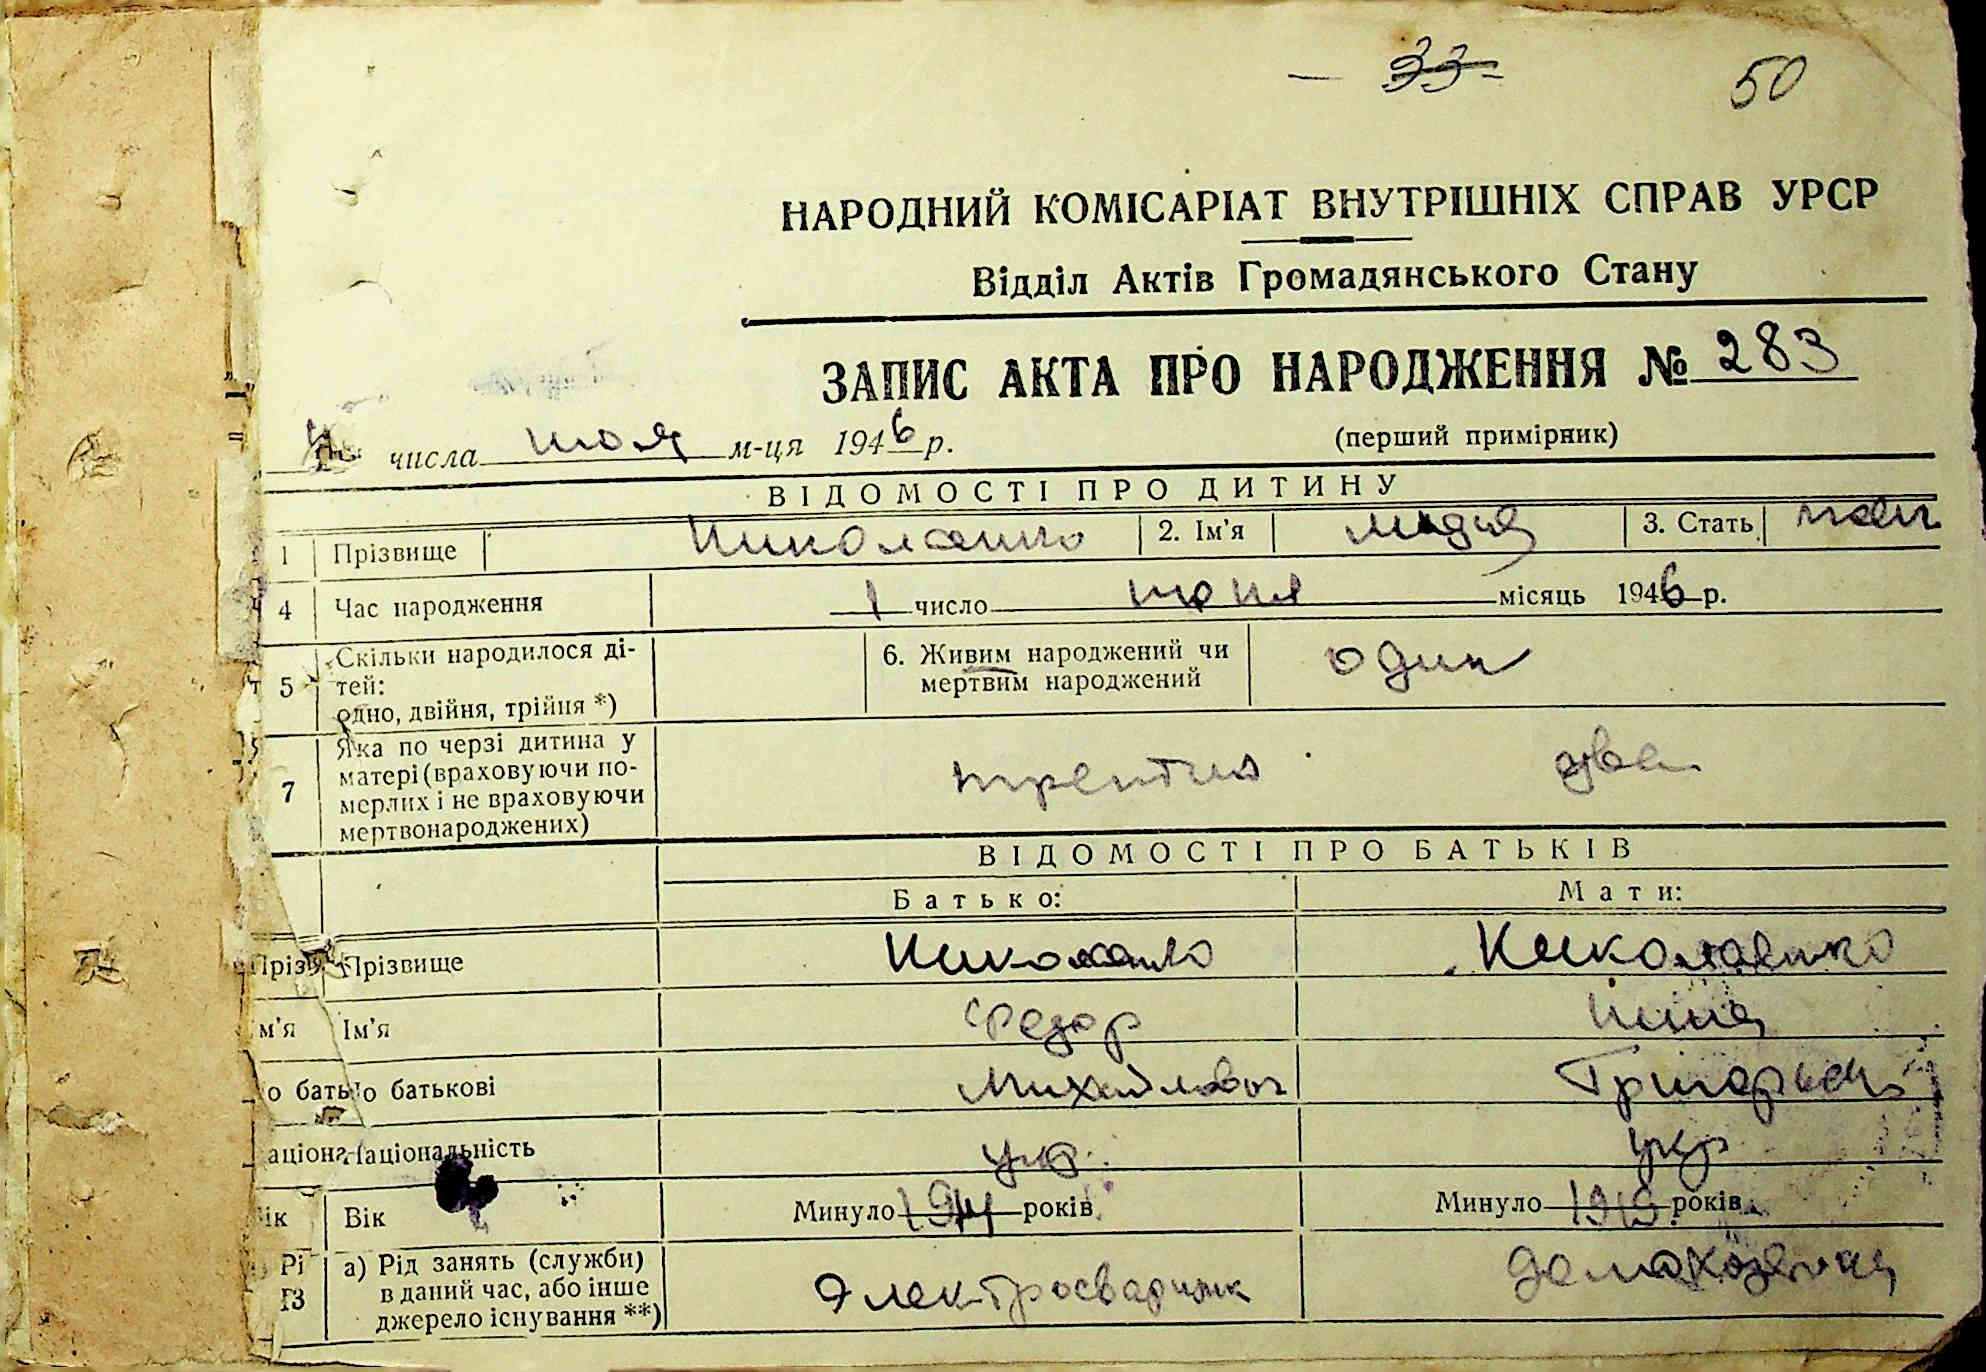 33 50
НАРОДНИЙ КОМІСАРІАТ ВНУТРІШНІХ СПРАВ УРСР
Відділ Актів Громадянського Стану
ЗАПИС АКТА ПРО НАРОДЖЕННЯ № 283
числа июля м-ця 1946 р. (перший примірник)
ВІДОМОСТІ ПРО ДИТИНУ
1 Прізвище Николаенко 2. Ім'я Лидия 3. Стать
4 Час народження 1 число июня місяць 1946 р.
5 Скільки народилося ді-
тей:
одно, двійня, трійня *)
6. Живим народжений чи
мертвим народжений
один
7 Яка по черзі дитина у
матері (враховуючи по-
мерлих і не враховуючи
мертвонароджених)
третья два
ВІДОМОСТІ ПРО БАТЬКІВ
Батько: Мати:
Прізвище Николаенко Николаенко
Ім'я Федор Нина
По батькові Михайлович Григорьев
Національність укр. укр
Вік Минуло 1914 років Минуло 1919 років
а) Рід занять (служби)
в даний час, або інше
джерело існування **)
Электросварщик домохозяйка